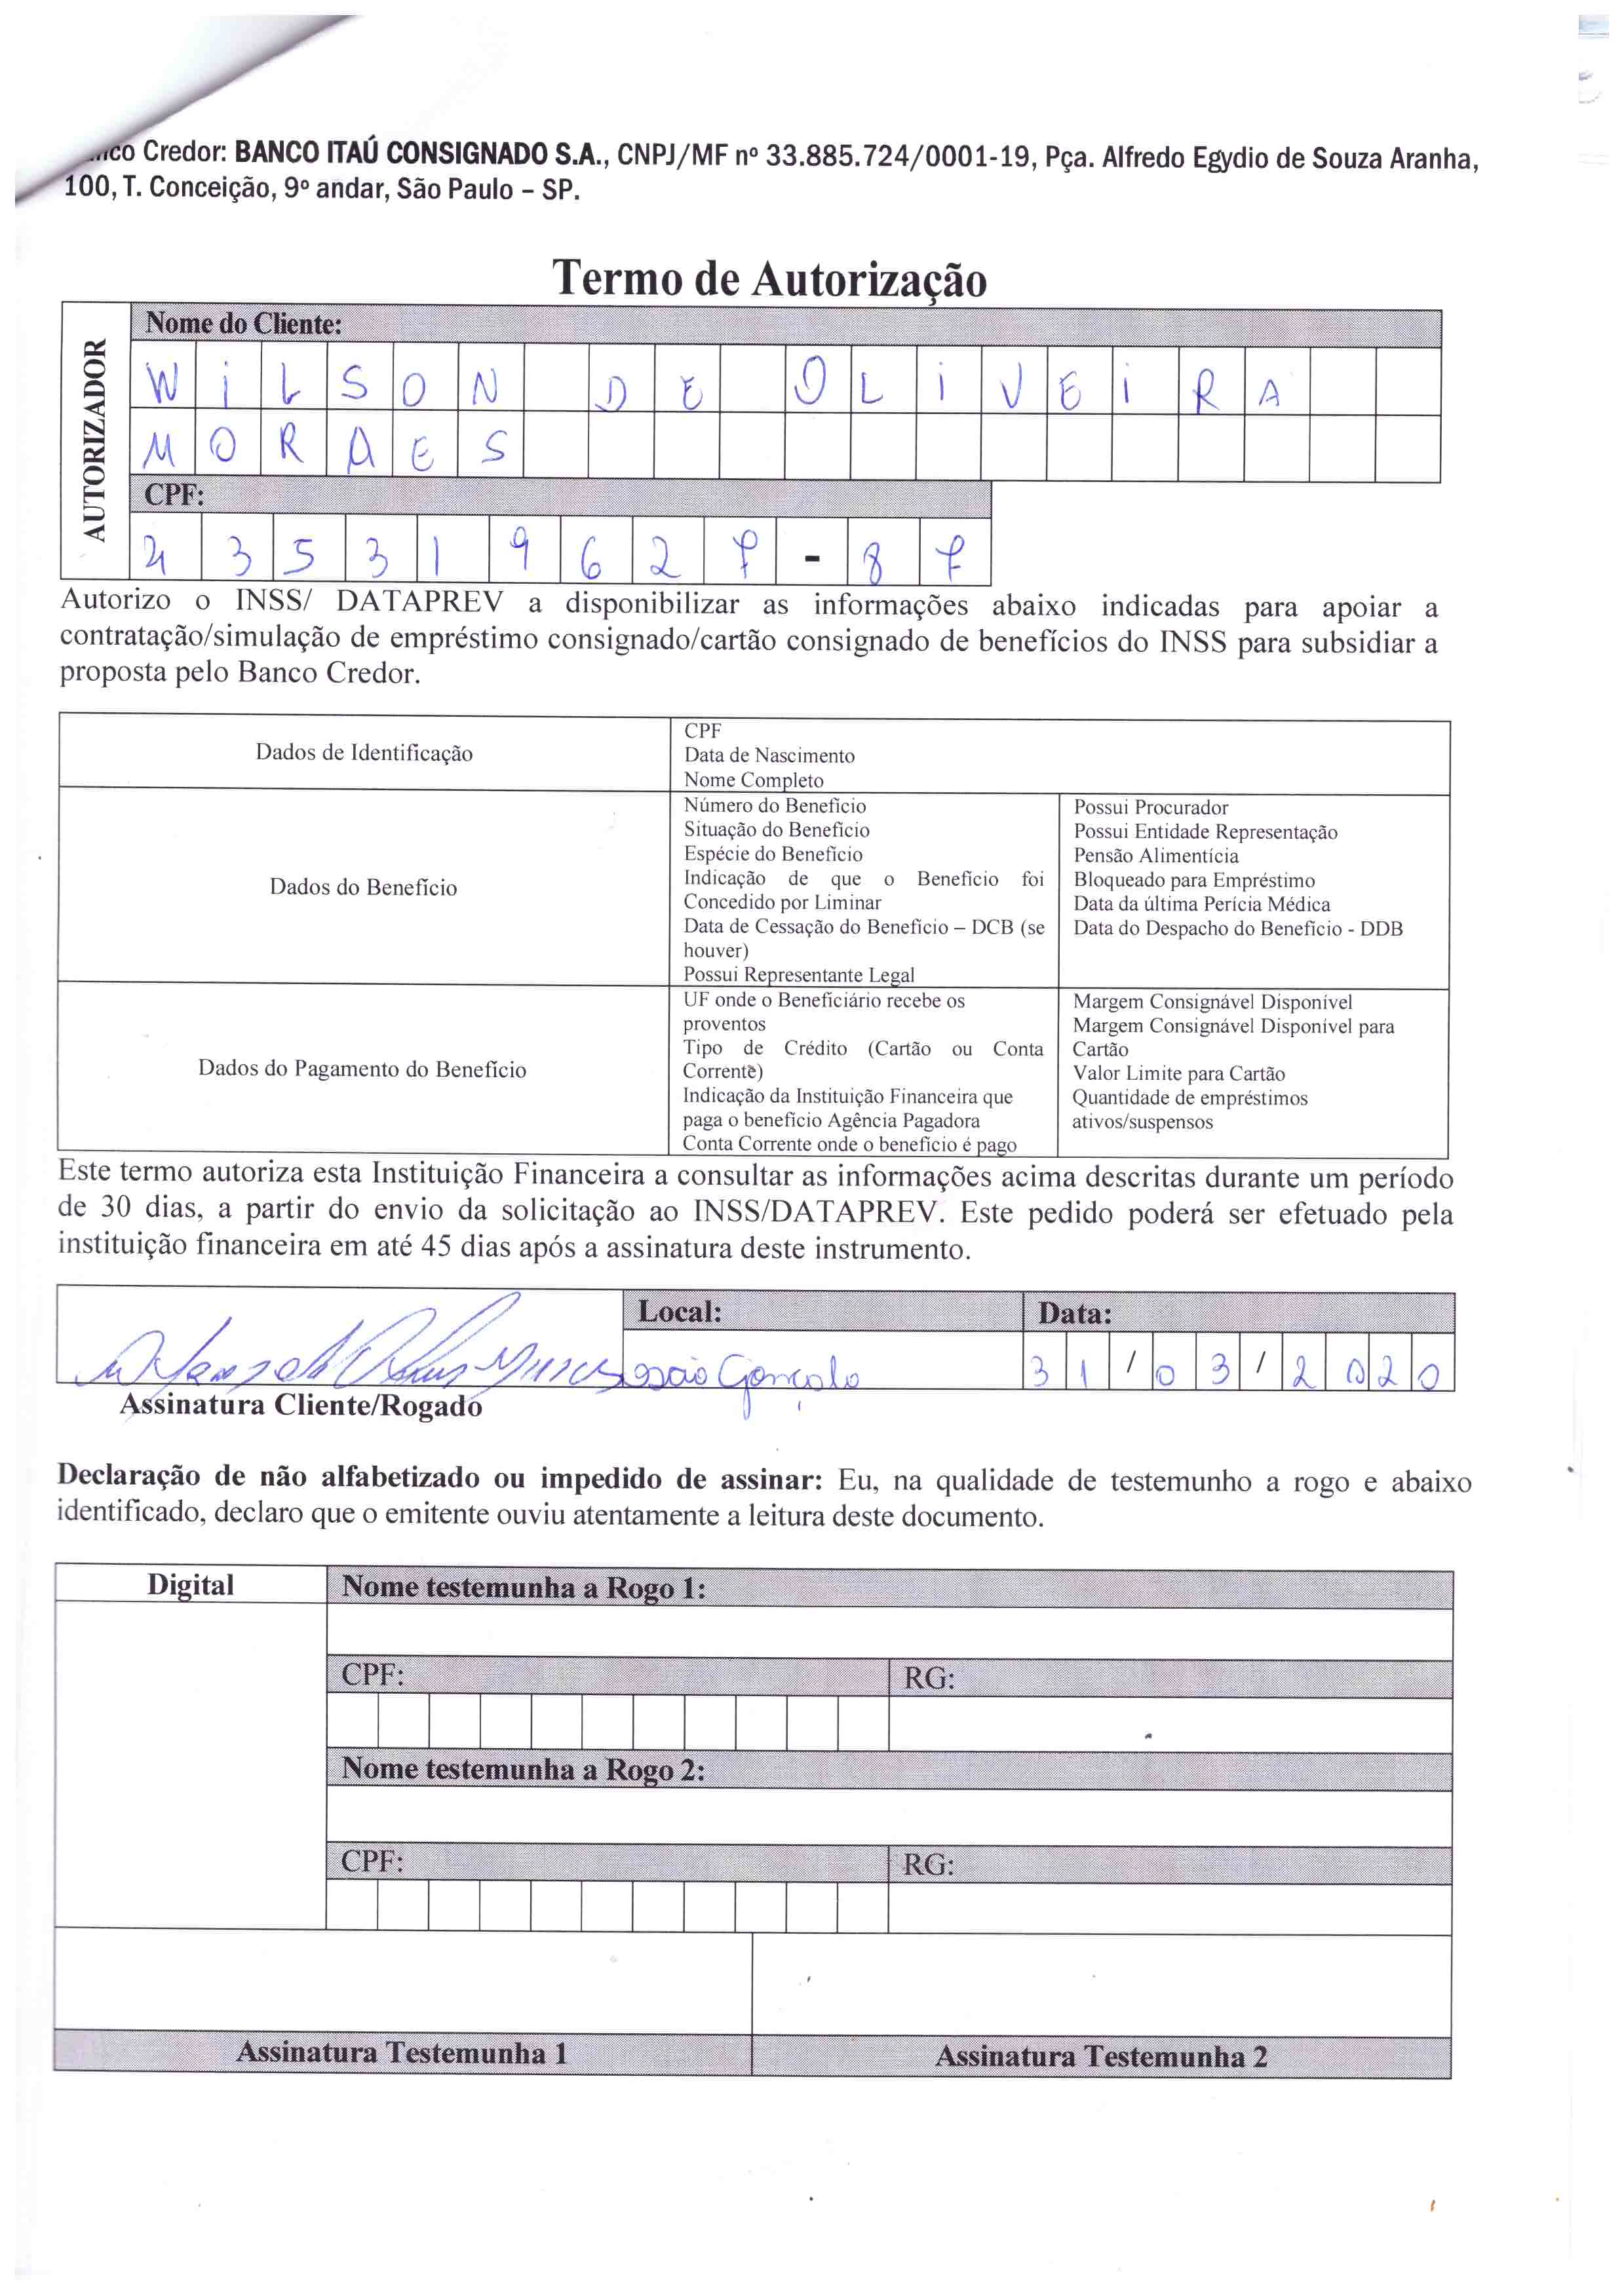 Credor: BANCO ITAÚ CONSIGNADO S.A., CNPJ/MF nº 33.885.724/0001-19, Pça. Alfredo Egydio de Souza Aranha,
100, T. Conceição, 9º andar, São Paulo – SP.
Termo de Autorização
AUTORIZADOR
Nome do Cliente:
WILSON DE OLIVEIRA
MORAES
CPF:
35319627-87
Autorizo o INSS/ DATAPREV a disponibilizar as informações abaixo indicadas para apoiar a
contratação/simulação de empréstimo consignado/cartão consignado de benefícios do INSS para subsidiar a
proposta pelo Banco Credor.
Dados de Identificação
CPF
Data de Nascimento
Nome Completo
Dados do Benefício
Número do Benefício
Situação do Benefício
Espécie do Benefício
Indicação de que o Benefício foi
Concedido por Liminar
Data de Cessação do Benefício – DCB (se
houver)
Possui Representante Legal
Possui Procurador
Possui Entidade Representação
Pensão Alimentícia
Bloqueado para Empréstimo
Data da última Perícia Médica
Data do Despacho do Benefício - DDB
Dados do Pagamento do Benefício
UF onde o Beneficiário recebe os
proventos
Tipo de Crédito (Cartão ou Conta
Corrente)
Indicação da Instituição Financeira que
paga o benefício Agência Pagadora
Conta Corrente onde o benefício é pago
Margem Consignável Disponível
Margem Consignável Disponível para
Cartão
Valor Limite para Cartão
Quantidade de empréstimos
ativos/suspensos
Este termo autoriza esta Instituição Financeira a consultar as informações acima descritas durante um período
de 30 dias, a partir do envio da solicitação ao INSS/DATAPREV. Este pedido poderá ser efetuado pela
instituição financeira em até 45 dias após a assinatura deste instrumento.
Local:
Data:
São Gonçalo
31/03/2020
Assinatura Cliente/Rogado
Declaração de não alfabetizado ou impedido de assinar: Eu, na qualidade de testemunho a rogo e abaixo
identificado, declaro que o emitente ouviu atentamente a leitura deste documento.
Digital
Nome testemunha a Rogo 1:
CPF:
RG:
Nome testemunha a Rogo 2:
CPF:
RG:
Assinatura Testemunha 1
Assinatura Testemunha 2